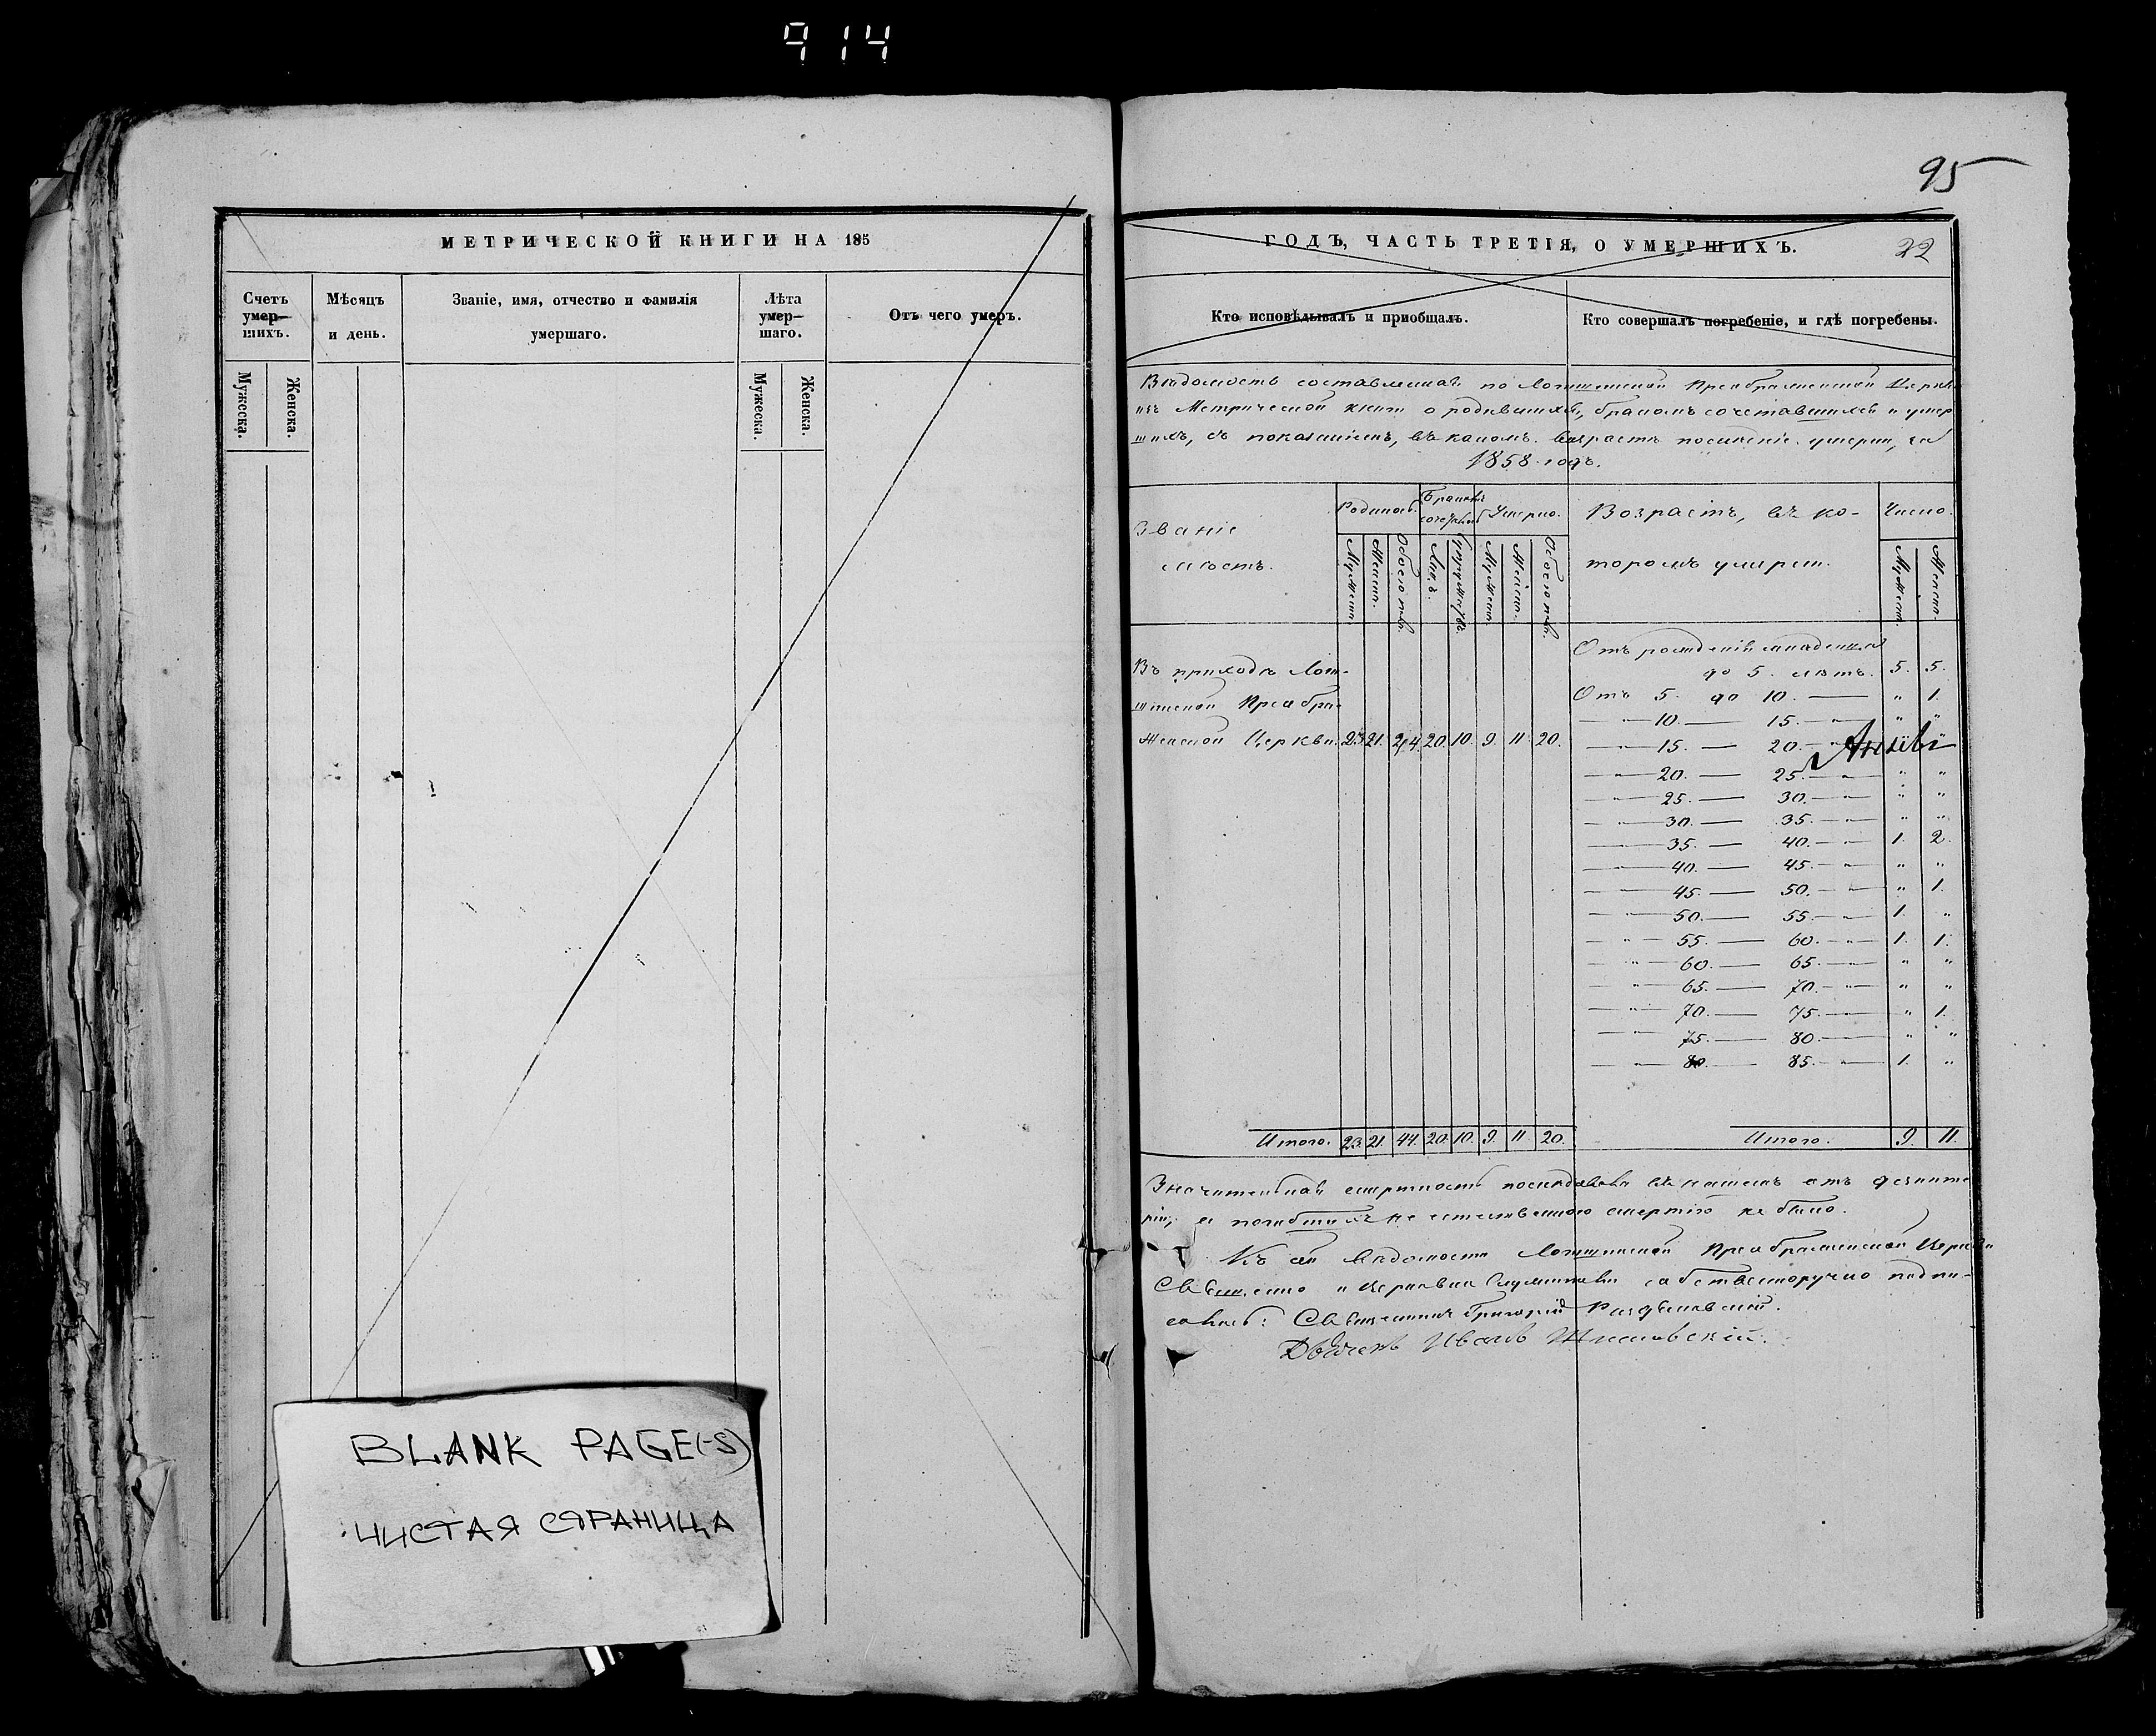 914
МЕТРИЧЕСКОЙ КНИГИ НА 185
Счетъ умер—шихъ.
Мѣсяцъ и день.
Званіе, имя, отчество и фамилія умершаго.
Лѣта умер—шаго.
Отъ чего умеръ.
Мужеска.
Женска.
Мужеска.
Женска.
BLANK PAGE(-S)
ЧИСТАЯ СТРАНИЦА
95
ГОДЪ, ЧАСТЬ ТРЕТІЯ, О УМЕРШИХЪ.
22
Кто исповѣдывалъ и приобщалъ.
Кто совершалъ погребеніе, и гдѣ погребены.
Вѣдомость составленная по Преображенской Церкви
изъ Метрической книги о родившихся, бракомъ сочетавшихся и умер
шихъ, съ показаніемъ, въ какомъ возрастѣ послѣдніе умерли, за
1858 годъ.
Званіе мѣстъ.
Родилось.
Бракомъ
Умерло.
Возрастъ, въ ко-
торомъ умерли.
Число.
Мужеск.
Женск.
Обоего пола.
Лицъ.
Супружествъ.
Мужеск.
Женск.
Обоего пола.
Мужеск.
Женск.
Отъ рожденія младенца
до 5. лѣтъ. 5. 5.
Въ приходѣ
Отъ 5. до 10. — " 1.
Преобра-
— " — 10. — 15. — " — " "
женской Церкви. 23. 21. 44. 20. 10. 9. 11. 20.
— " — 15. — 20. — " —
— " — 20. — 25. — " — " "
— " — 25. — 30. — " — " "
— " — 30. — 35. — " — " "
— " — 35. — 40. — " — 1. 2.
— " — 40. — 45. — " — " "
— " — 45. — 50. — " — " 1.
— " — 50. — 55. — " — 1. "
— " — 55. — 60. — " — 1. 1.
— " — 60. — 65. — " — " "
— " — 65. — 70. — " — " "
— " — 70. — 75. — " — " 1.
— " — 75. — 80. — " — " "
— " — 80. — 85. — " — 1. "
Итого. 23. 21. 44. 20. 10. 9. 11. 20.
Итого. 9. 11.
Значительная смертность послѣдовала въ нашемъ отъ дезинте
ріи; а погибшихъ не естественною смертію не было.
Къ сей вѣдомости Преображенской Церкви
Священно и Церковно Служители собственноручно подпи-
сались: Священникъ Григорій
Дьячекъ Иванъ